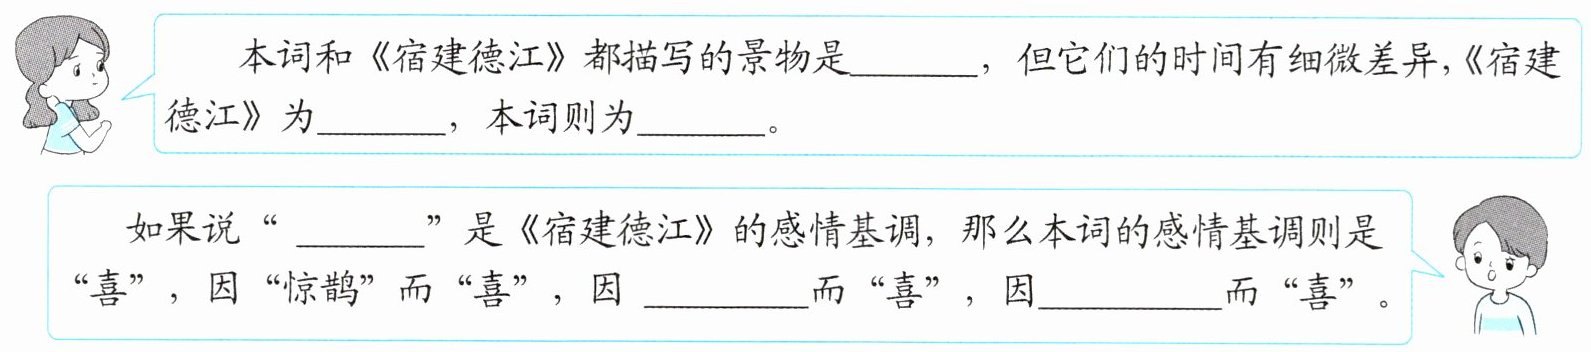 本词和《宿建德江》都描写的景物是________，但它们的时间有细微差异，《宿建
德江》为________，本词则为________。
如果说“ ________”是《宿建德江》的感情基调，那么本词的感情基调则是
“喜”，因“惊鹊”而“喜”，因 __________而“喜”，因___________而“喜”。